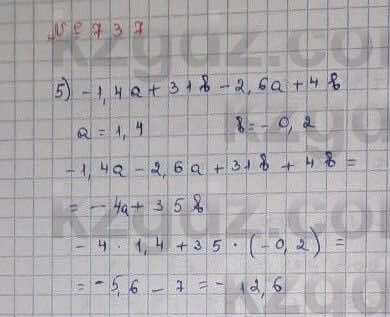 № 737
5) -1,4a + 31b - 2,6a + 4b
a = 1,4 b = -0,2
-1,4a - 2,6a + 31b + 4b =
= -4a + 35b
-4 · 1,4 + 35 · (-0,2) =
= -5,6 - 7 = -12,6
kzgdz.com